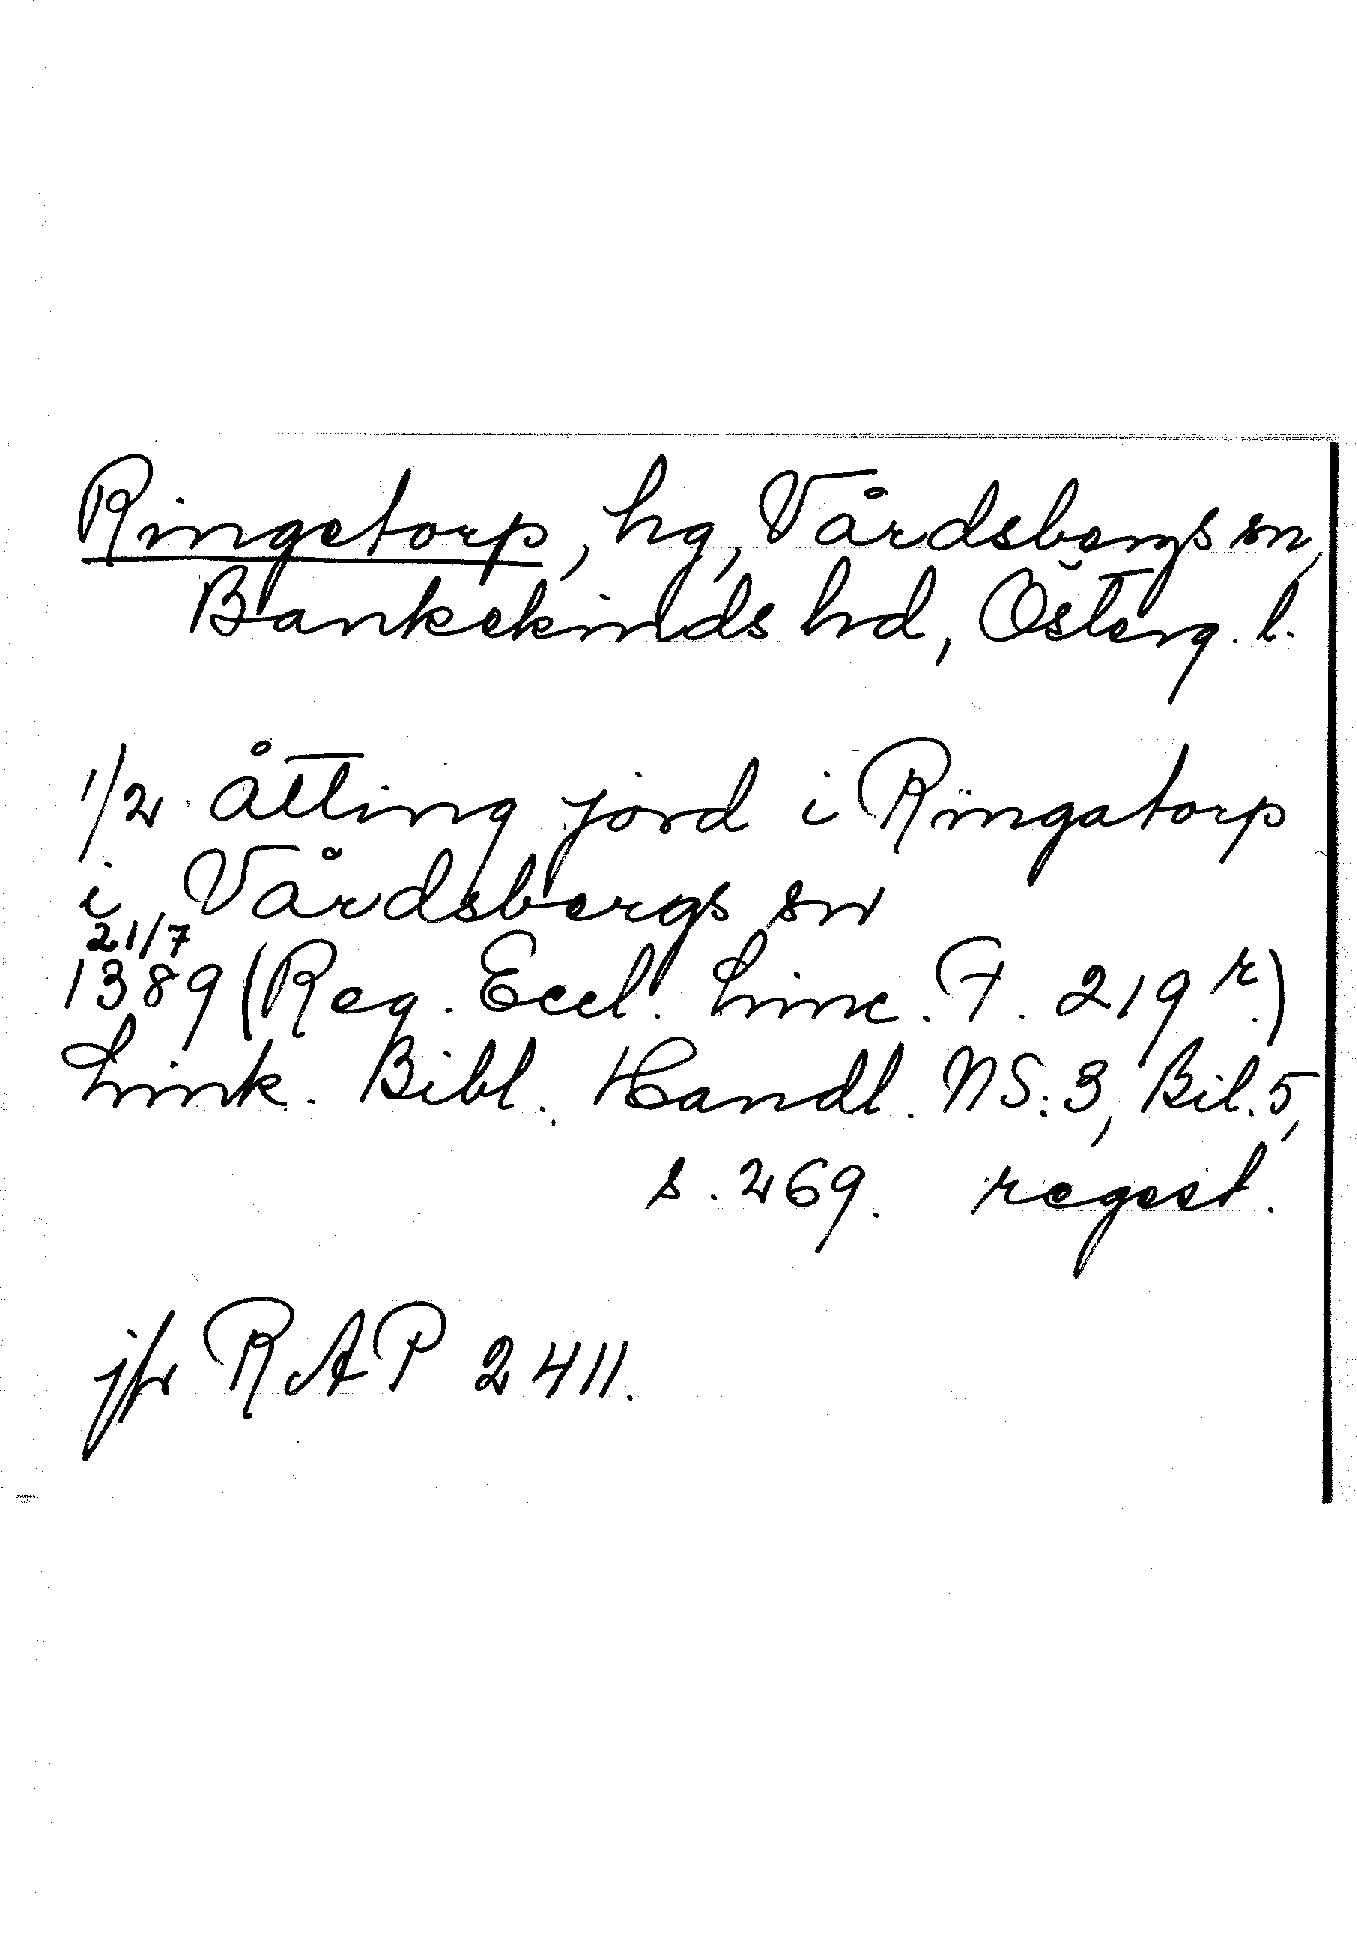 Ringetorp, hg, Vårdsbergs sn,
Bankekinds hd, Österg. l.
1/2 åtting jord i Ringatorp
i Vårdsbergs sn
21/7
1389 (Reg. Eccl. Linc. F. 219 r.)
Link. Bibl. Handl. NS:3, Bil. 5,
s. 269. regest.
jfr RAP 2411.